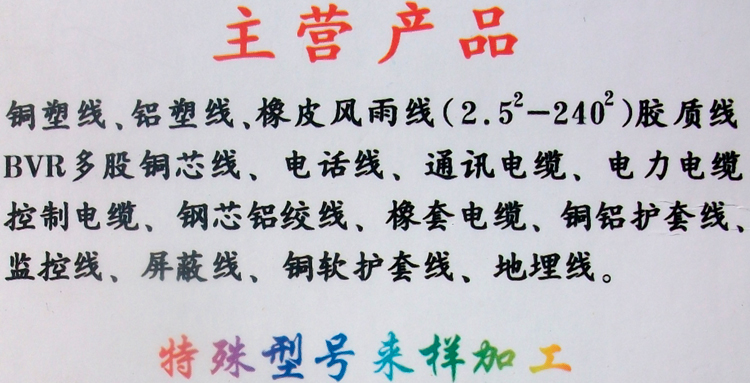 主营产品
铜塑线、铝塑线、橡皮风雨线(2.5²-240²)胶质线
BVR多股铜芯线、电话线、通讯电缆、电力电缆
控制电缆、钢芯铝绞线、橡套电缆、铜铝护套线、
监控线、屏蔽线、铜软护套线、地埋线。
特殊型号来样加工